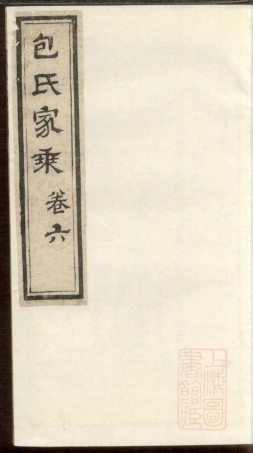 包氏家乘 卷六
上海圖
書館藏